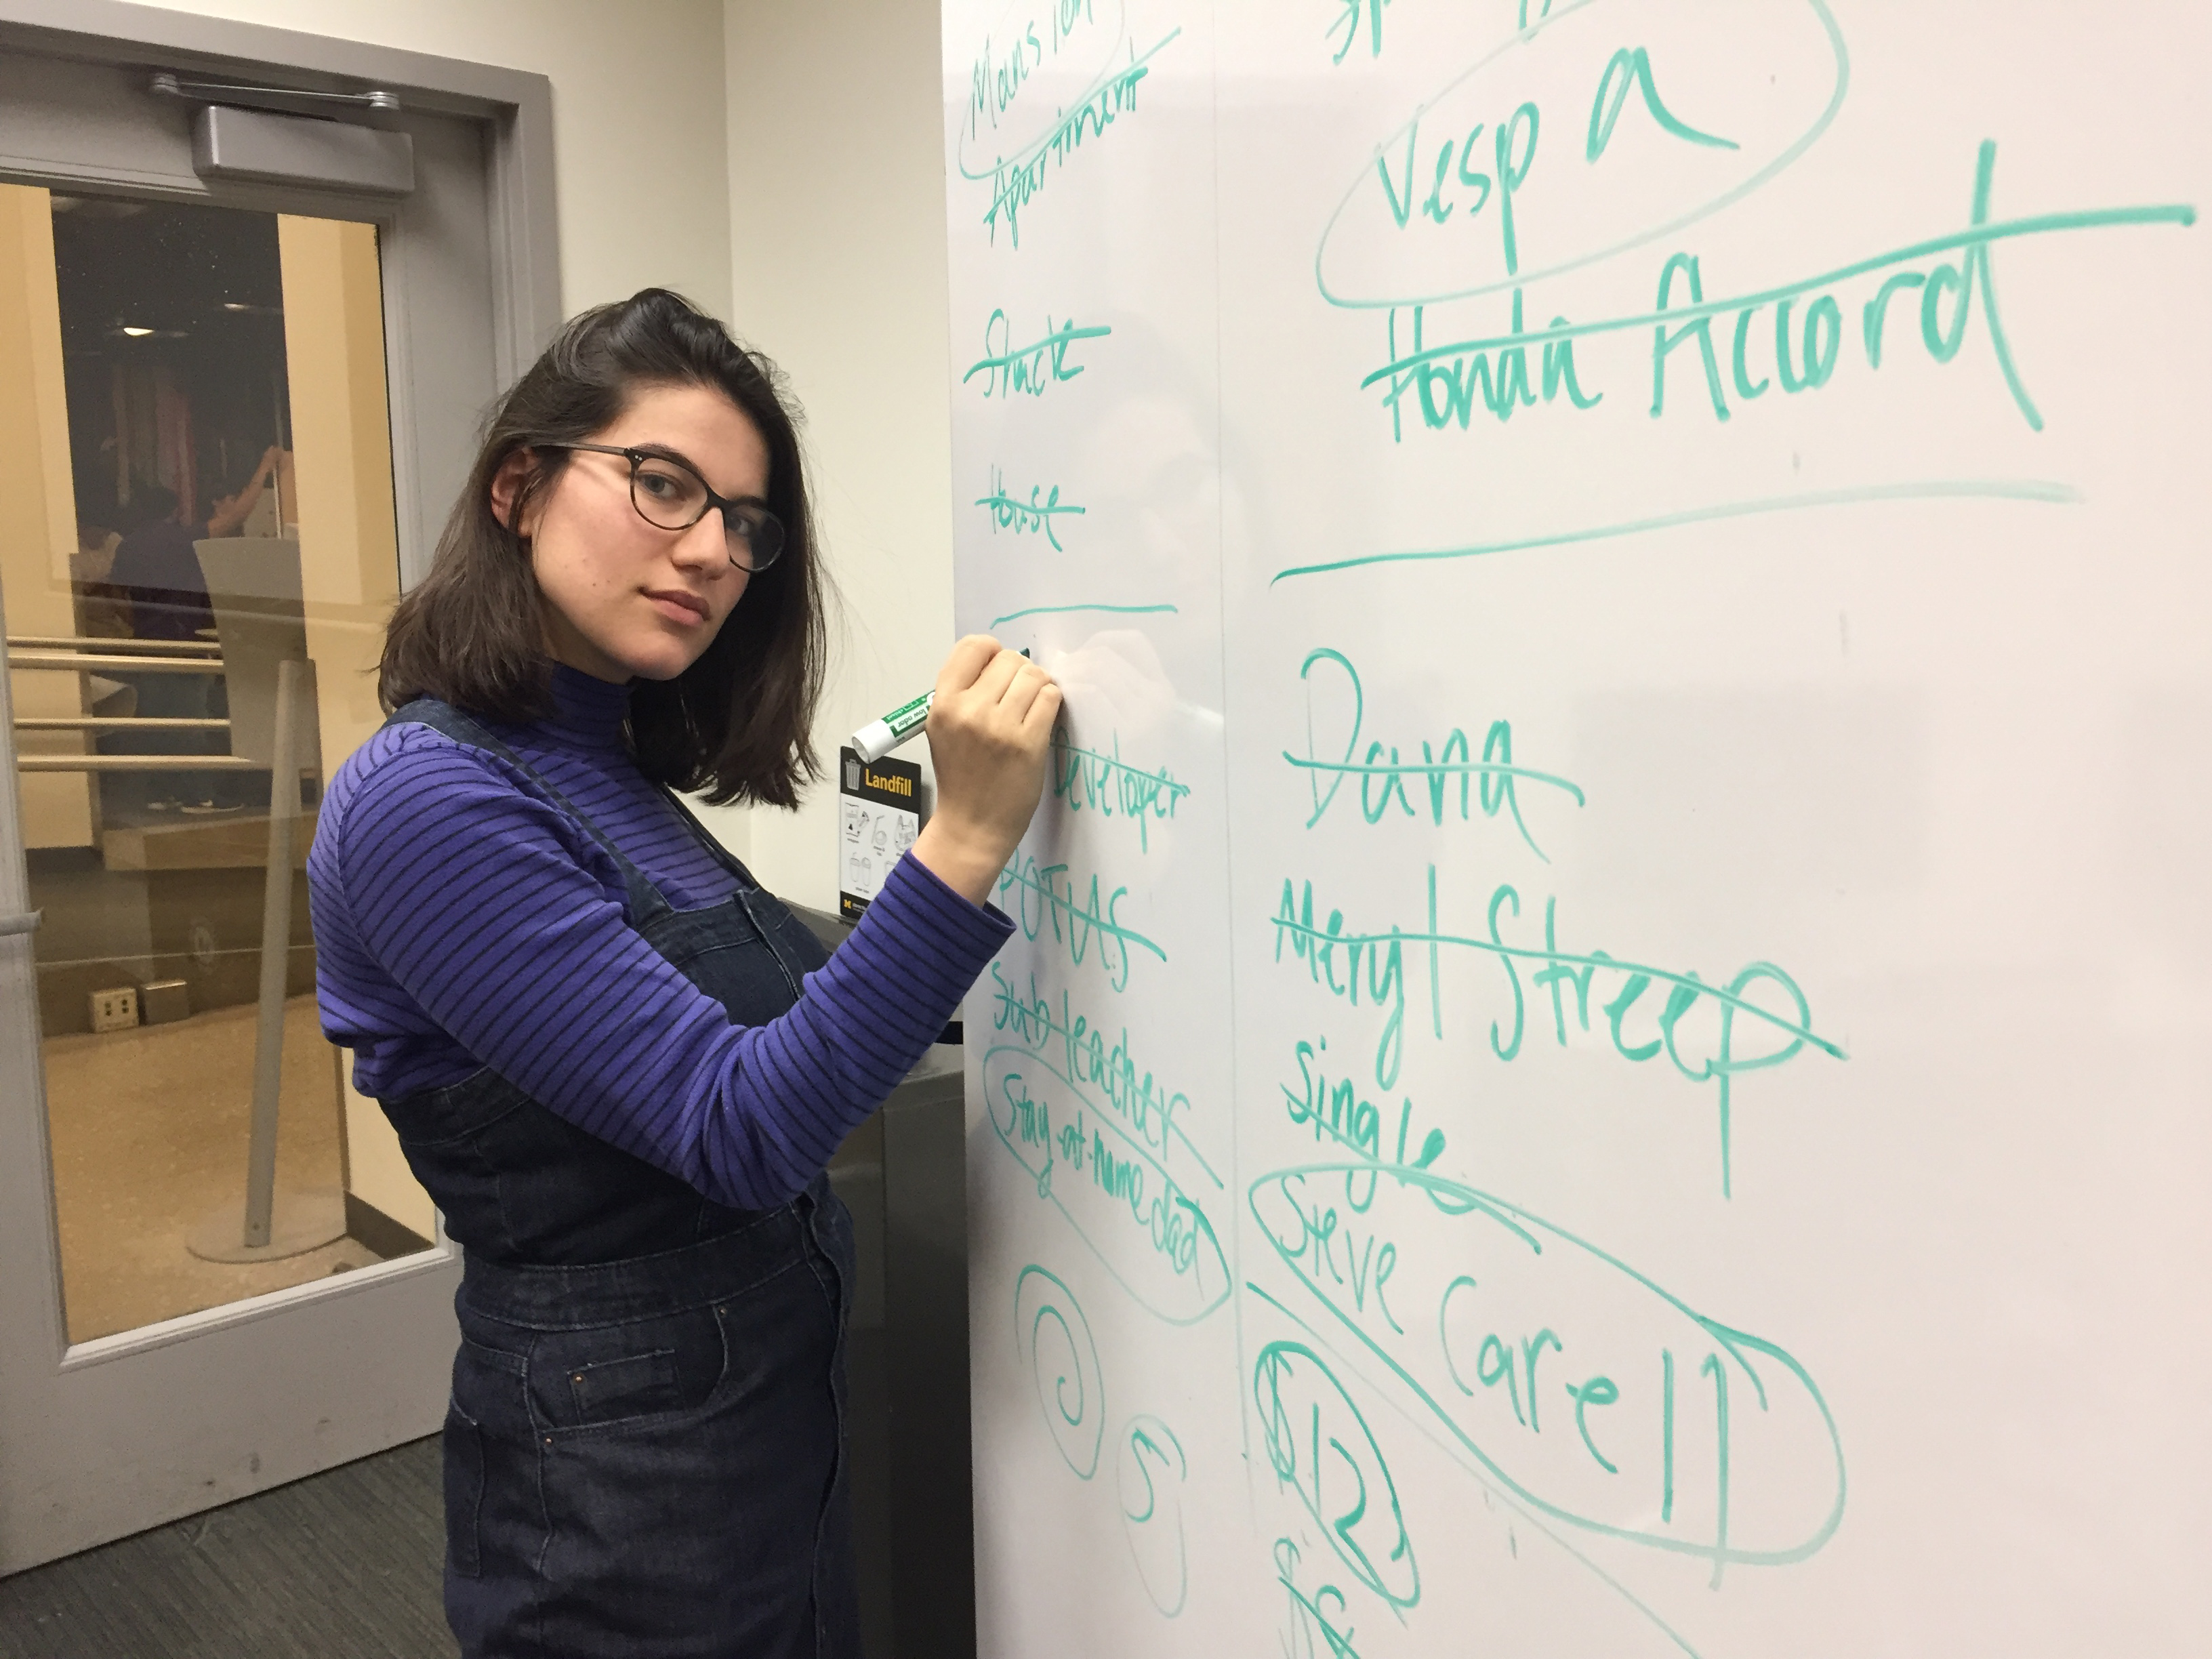 Mansion
Apartment
Shack
House
Developer
POTUS
Sub teacher
Stay-at-home dad
5
Vespa
Honda Accord
Dana
Meryl Streep
Single
Steve Carell
$12
Landfill